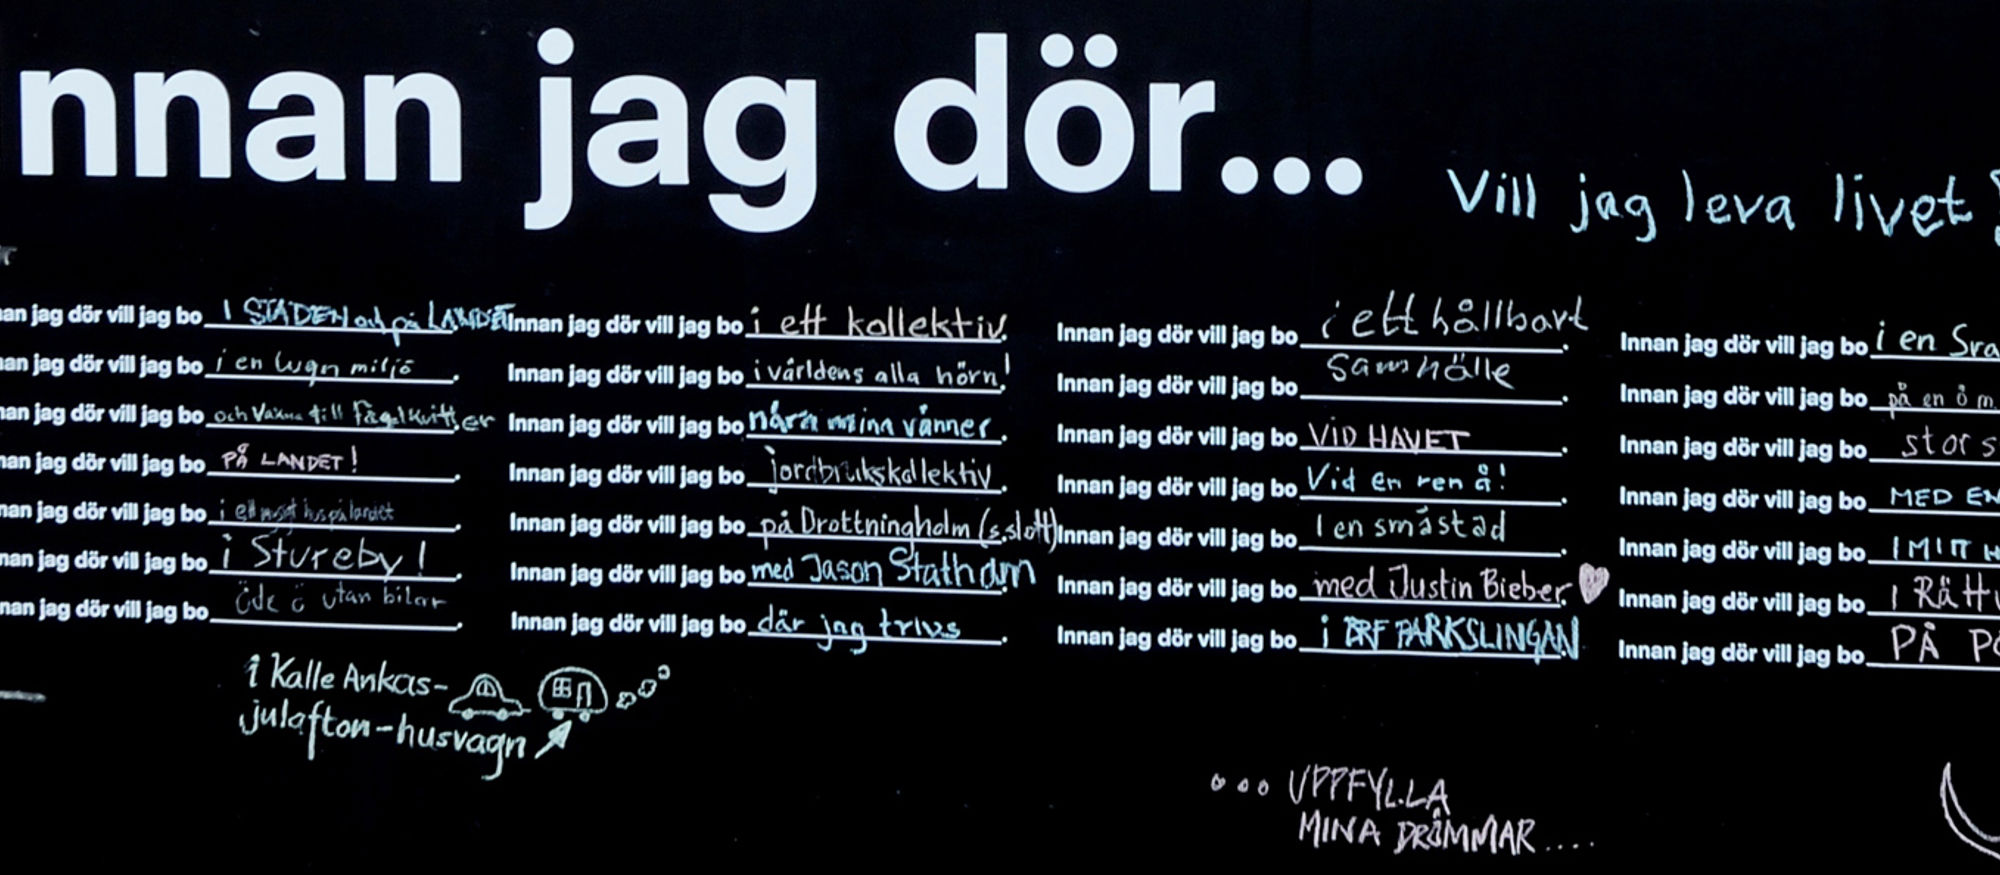 nnan jag dör...
Vill jag leva livet
an jag dör vill jag bo I STADEN och på LANDET
an jag dör vill jag bo i en lugn miljö
an jag dör vill jag bo och vakna till fågelkvitter
an jag dör vill jag bo PÅ LANDET!
an jag dör vill jag bo i ett mysigt hus på landet
nan jag dör vill jag bo i Stureby!
nan jag dör vill jag bo öde ö utan bilar
i Kalle Ankas-
julafton-husvagn
Innan jag dör vill jag bo i ett kollektiv.
Innan jag dör vill jag bo i världens alla hörn!
Innan jag dör vill jag bo nära mina vänner.
Innan jag dör vill jag bo jordbrukskollektiv.
Innan jag dör vill jag bo på Drottningholm (s.slott)
Innan jag dör vill jag bo med Jason Statham
Innan jag dör vill jag bo där jag trivs.
Innan jag dör vill jag bo i ett hållbart
Innan jag dör vill jag bo samhälle
Innan jag dör vill jag bo VID HAVET.
Innan jag dör vill jag bo Vid en ren å!
Innan jag dör vill jag bo I en småstad.
Innan jag dör vill jag bo med Justin Bieber.
Innan jag dör vill jag bo i BRF PARKSLINGAN
Innan jag dör vill jag bo i en Sra
Innan jag dör vill jag bo på en ö m
Innan jag dör vill jag bo stor s
Innan jag dör vill jag bo MED EN
Innan jag dör vill jag bo I MITT H
Innan jag dör vill jag bo I RÄTTV
Innan jag dör vill jag bo PÅ PO
... UPPFYLLA
MINA DRÖMMAR....